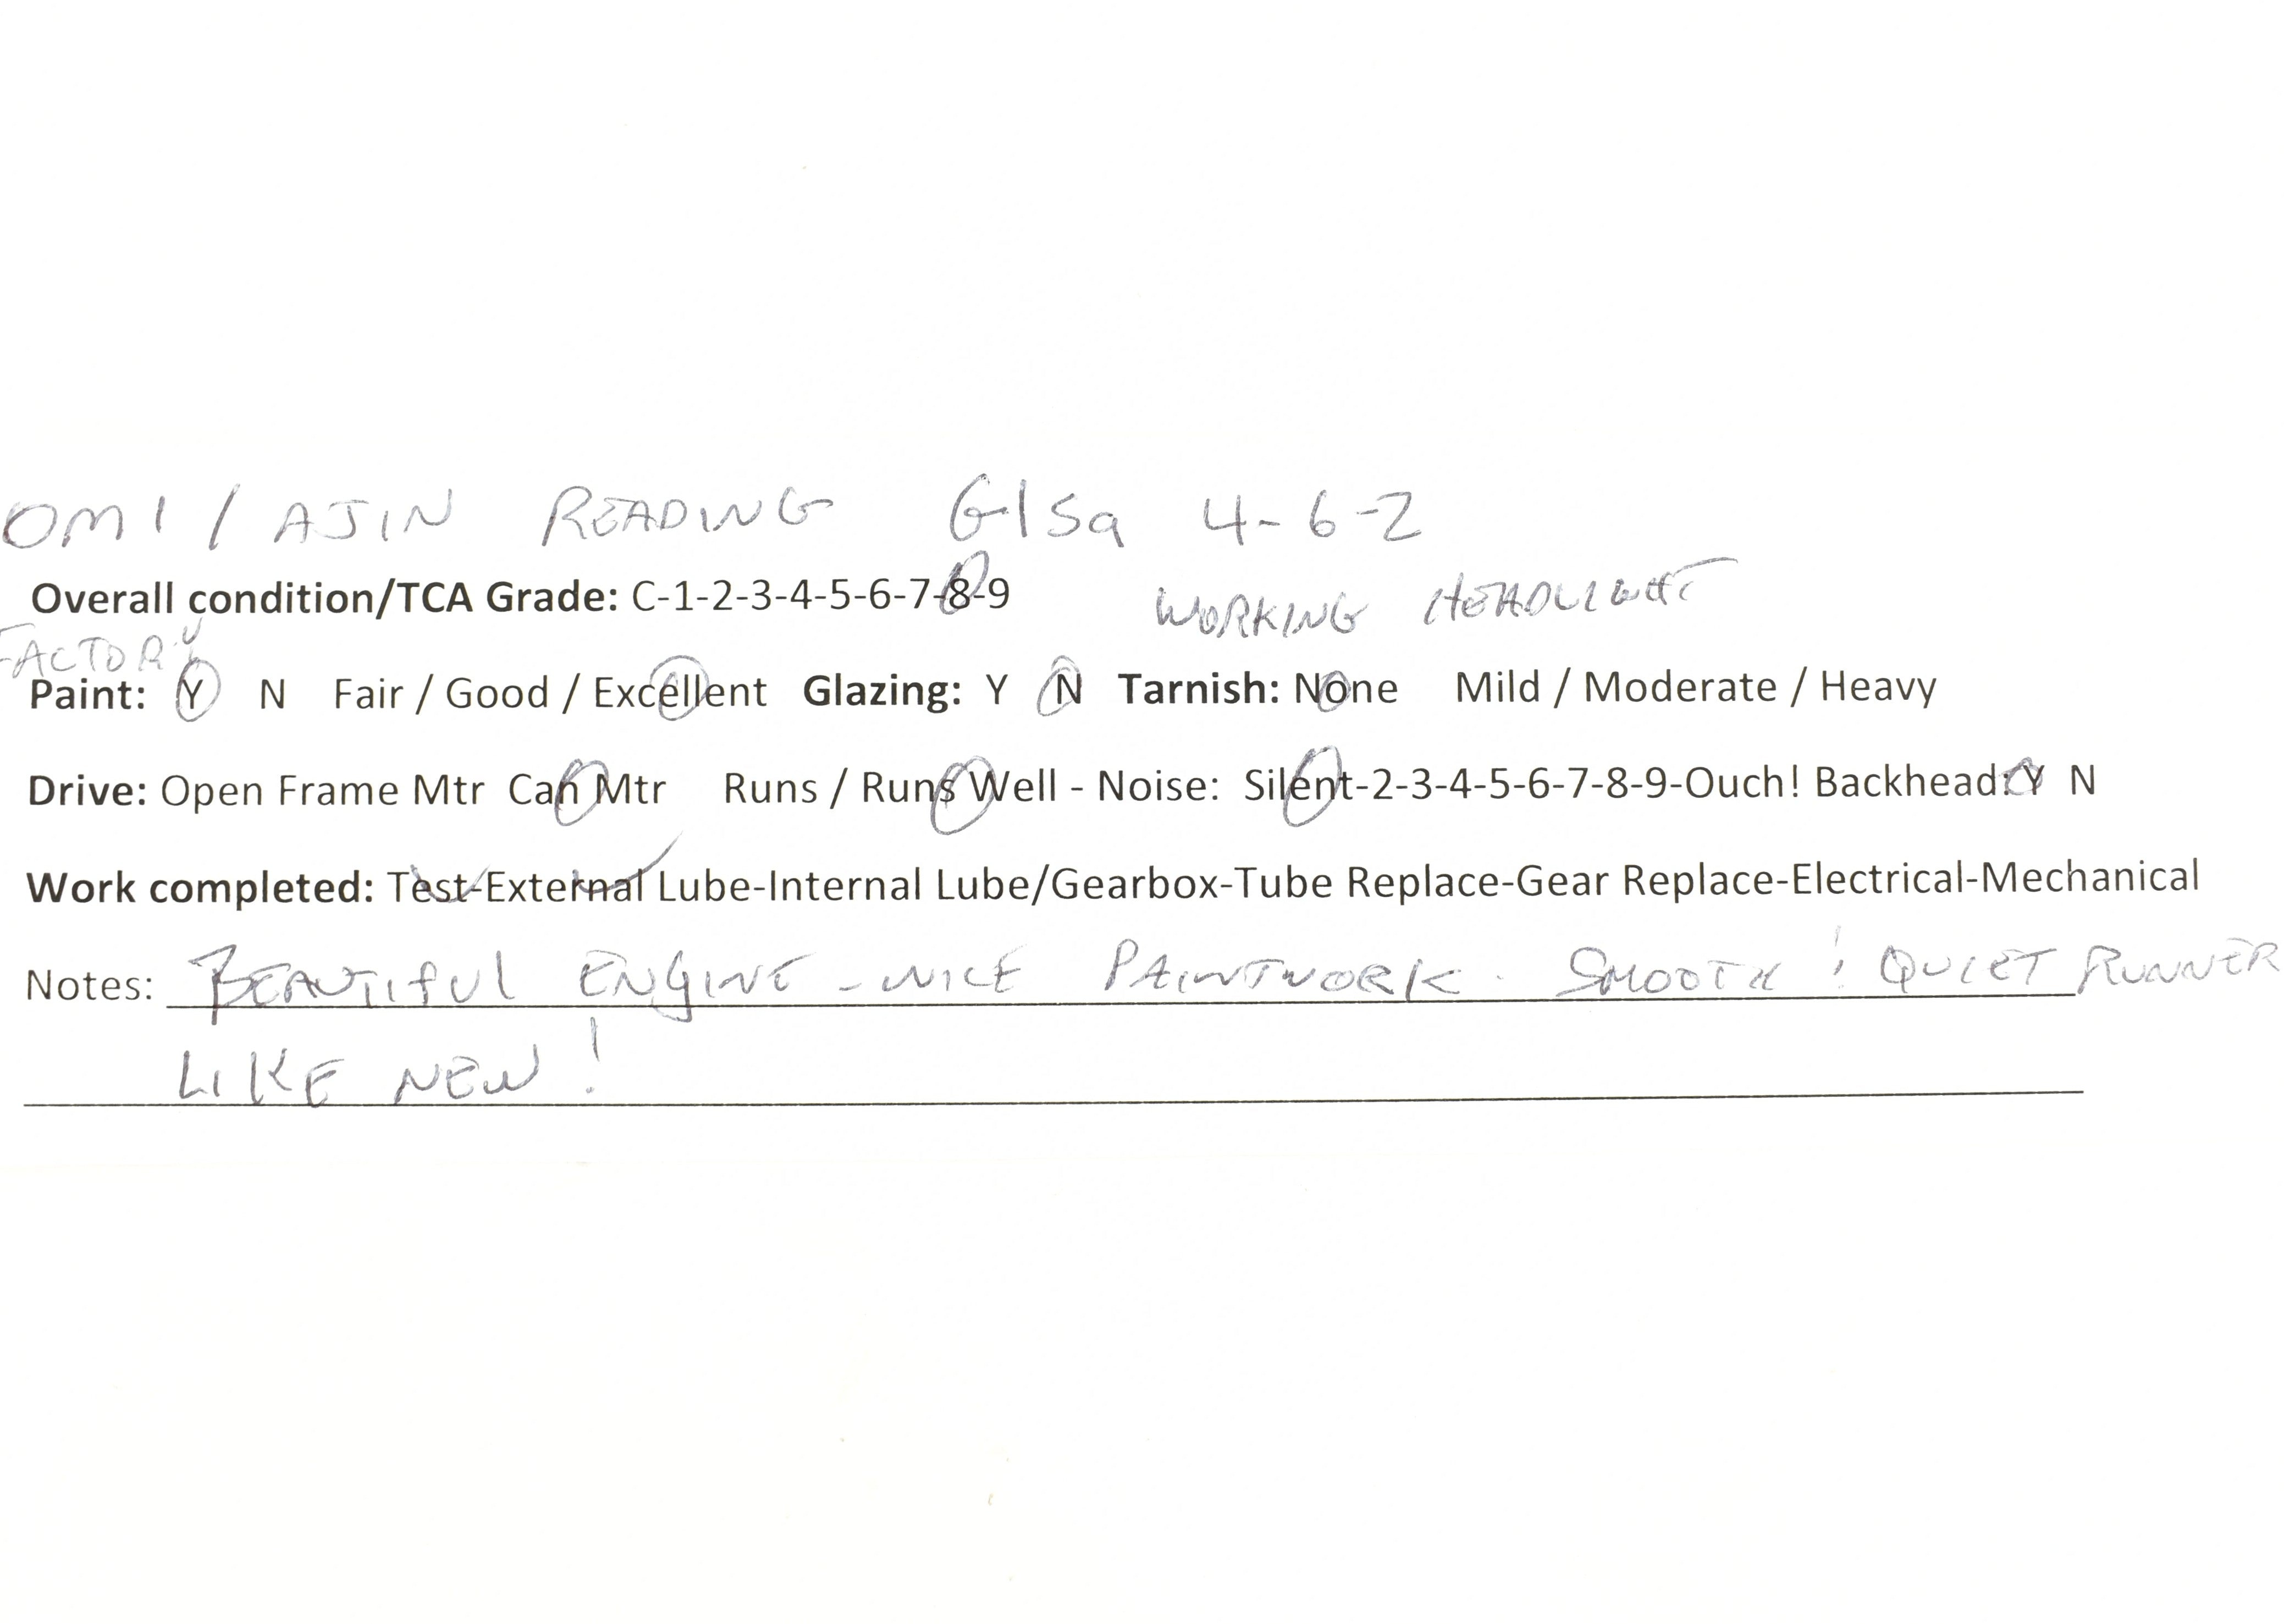 OMI / AJIN READING G1sa 4-6-2
Overall condition/TCA Grade: C-1-2-3-4-5-6-7-8-9 WORKING HEADLIGHT
FACTORY
Paint: Y N Fair / Good / Excellent Glazing: Y N Tarnish: None Mild / Moderate / Heavy
Drive: Open Frame Mtr Can Mtr Runs / Runs Well - Noise: Silent-2-3-4-5-6-7-8-9-Ouch! Backhead: Y N
Work completed: Test-External Lube-Internal Lube/Gearbox-Tube Replace-Gear Replace-Electrical-Mechanical
Notes: BEAUTIFUL ENGINE - NICE PAINTWORK. SMOOTH ! QUIET RUNNER
LIKE NEW!